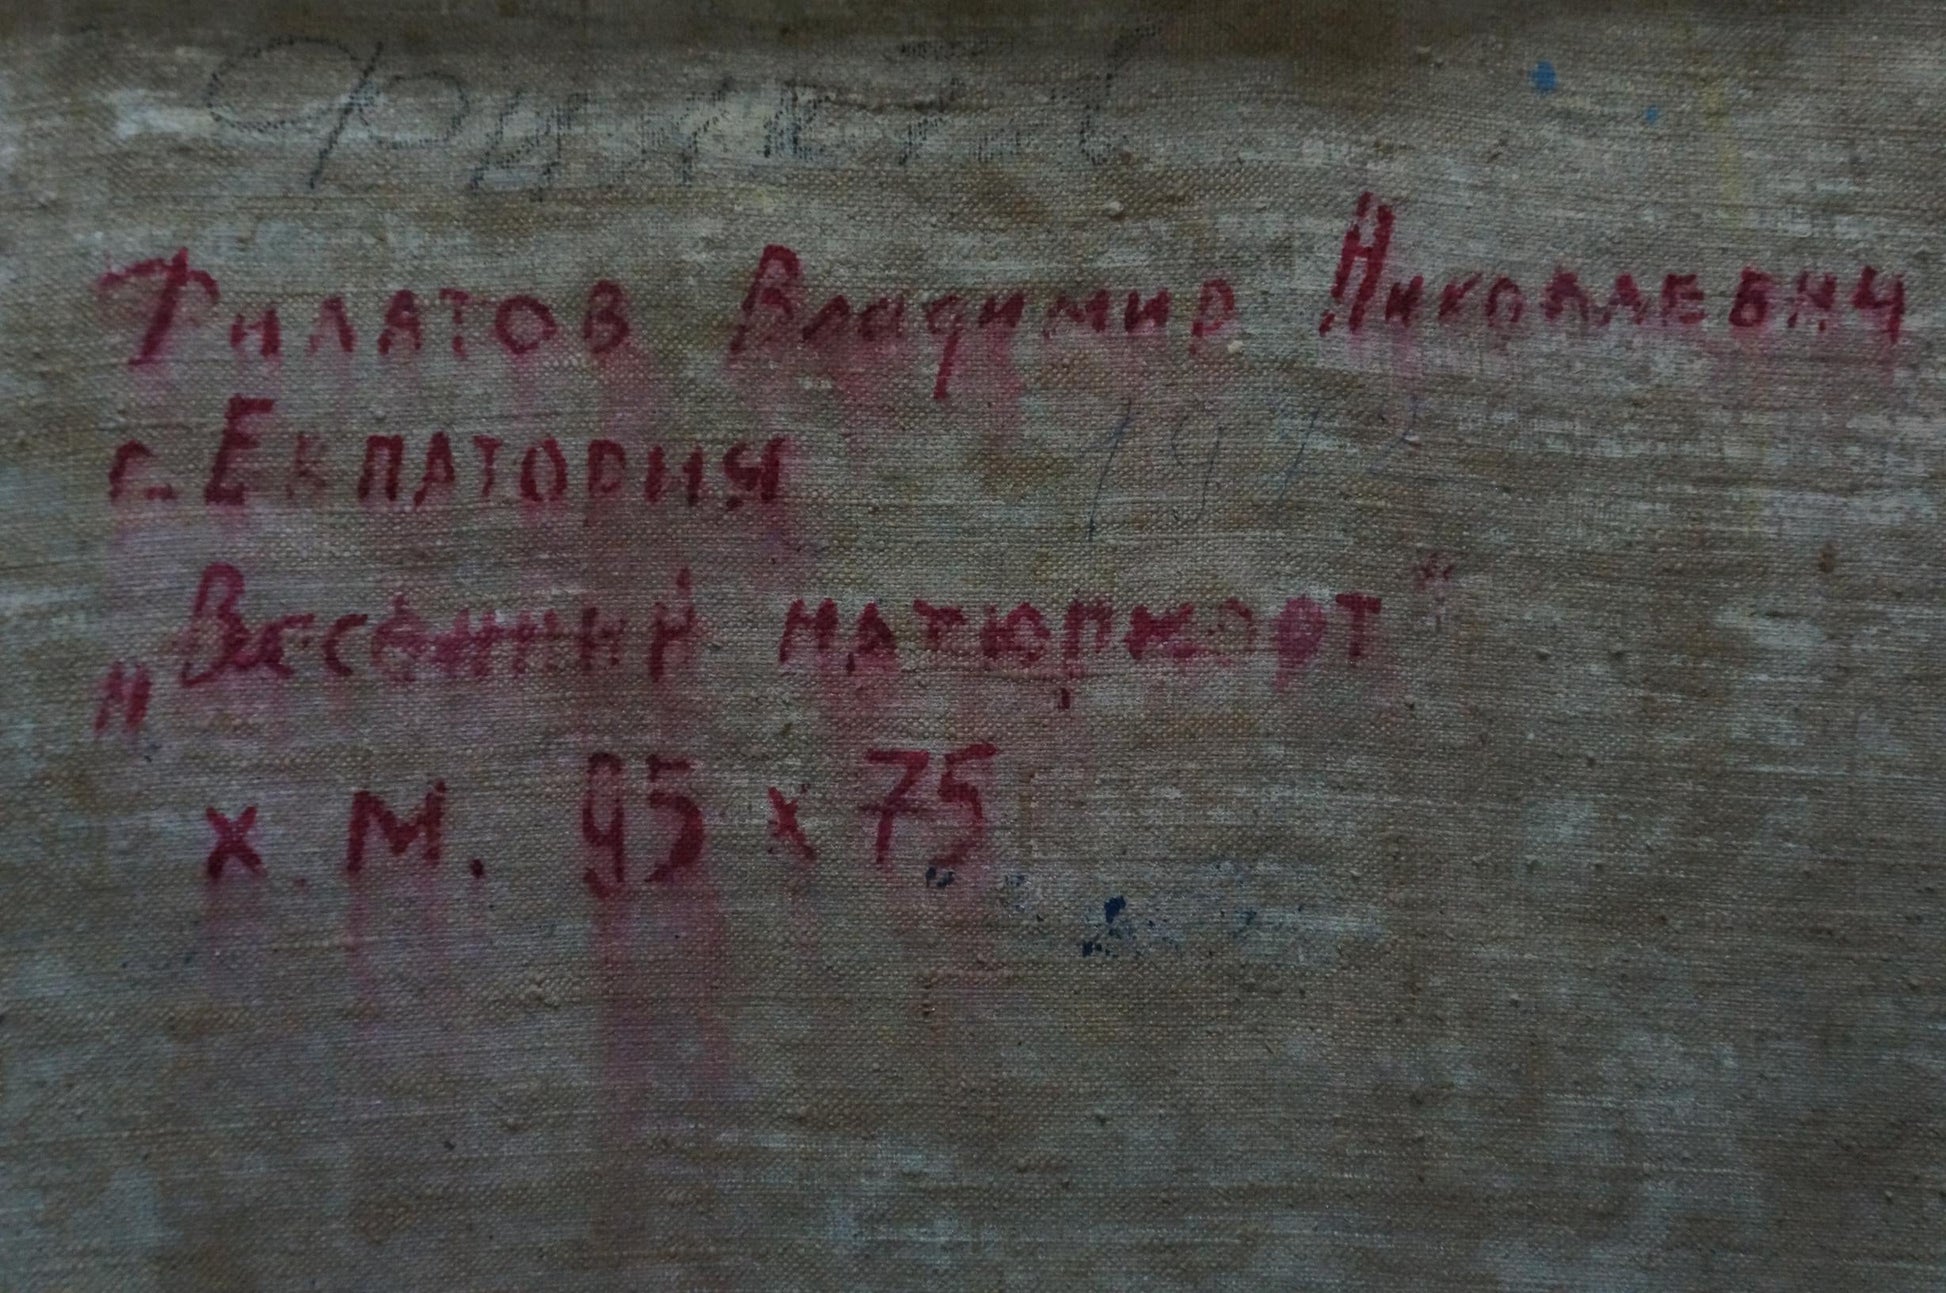 Филатов
Филатов Владимир Николаевич
г. Евпатория
1972
„Весенний натюрморт"
х. М. 95 х 75